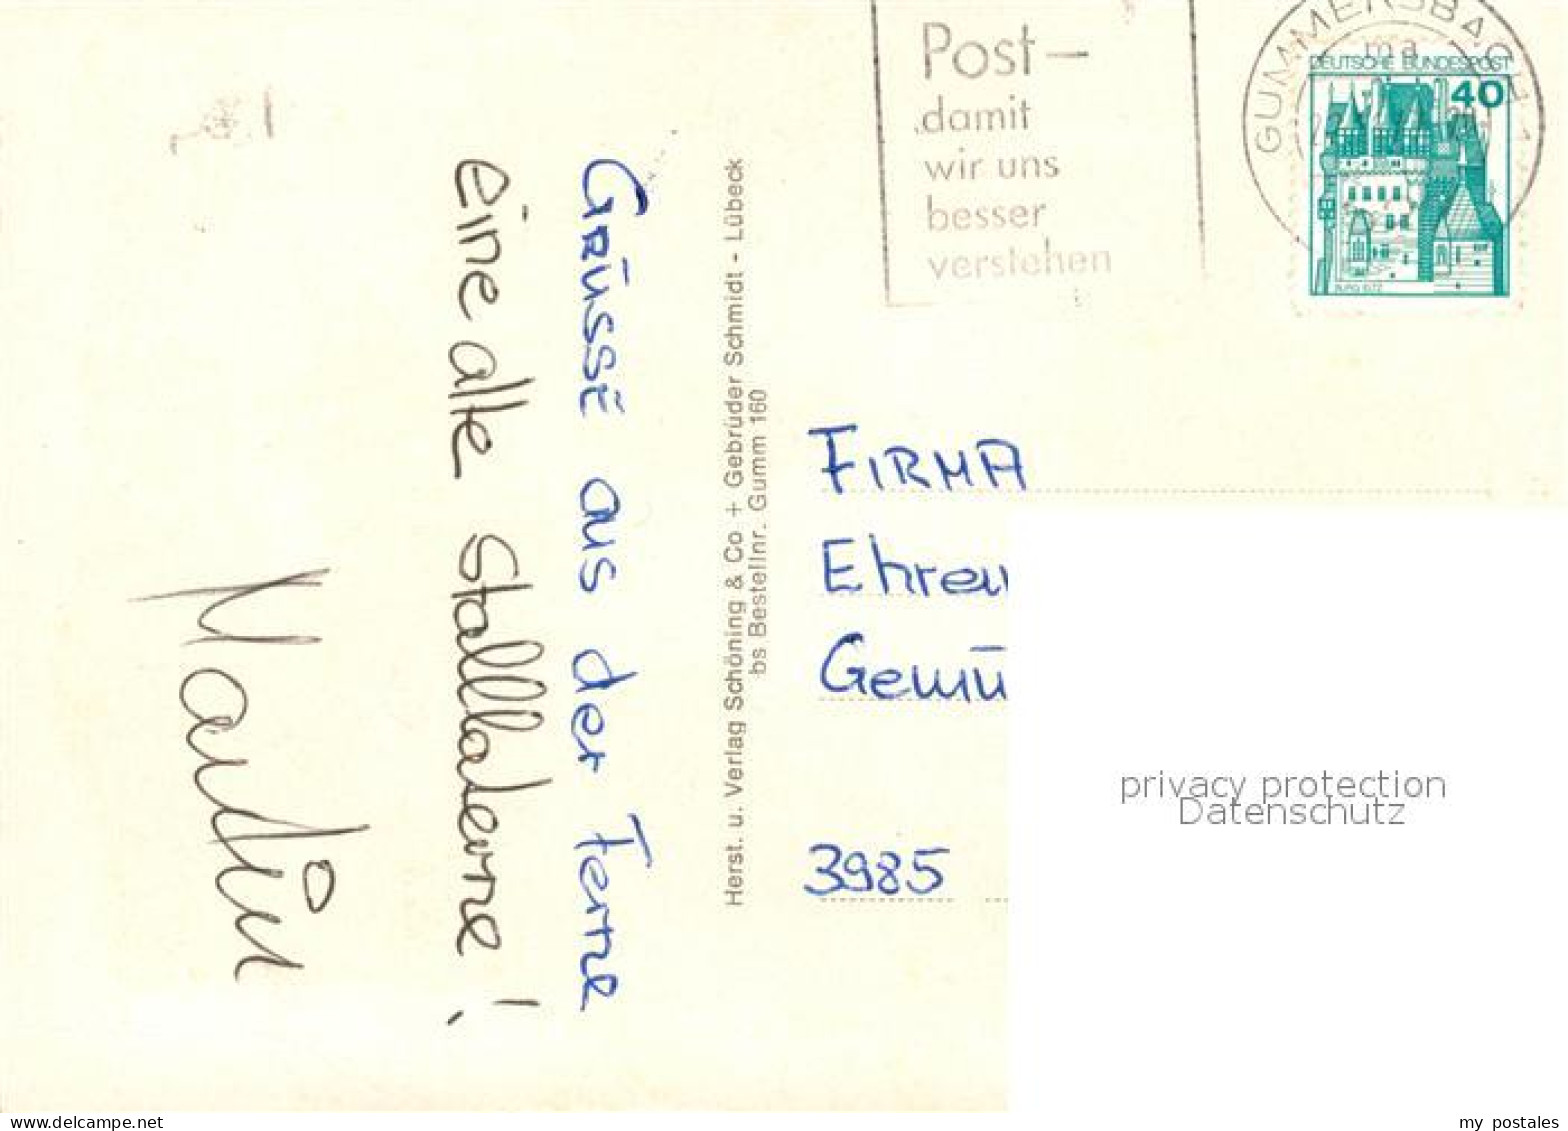 Grüsse aus der Ferne
eine alte Stalllaterne!
Martin
Herst. u. Verlag Schöning & Co + Gebrüder Schmidt - Lübeck
bs Bestellnr. Gumm 160
Post-
damit
wir uns
besser
verstehen
GUMMERSBACH 1
ma
DEUTSCHE BUNDESPOST
40
BURG ELTZ
FIRMA
Ehren
Gemü
3985
privacy protection
Datenschutz
my postales